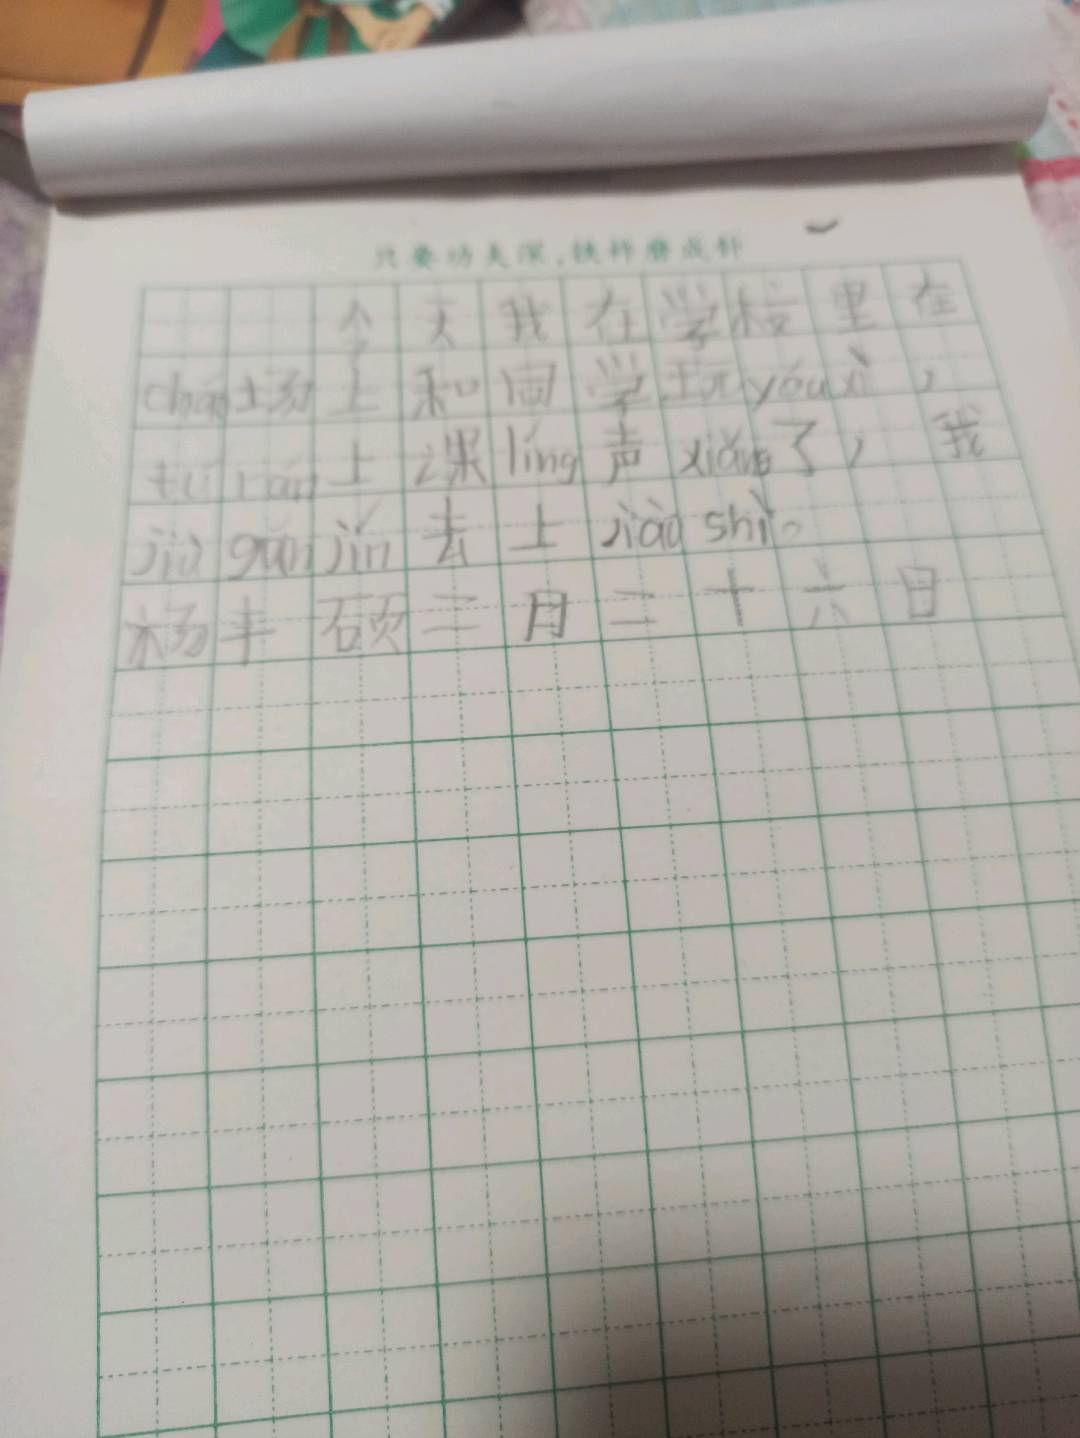 只要功夫深,铁杵磨成针
今天我在学校里在
chǎng场上和同学玩yóuxì,
tū rán上课líng声xiǎng了,我
jiù gǎn jǐn去上jiào shì。
杨丰硕三月二十六日